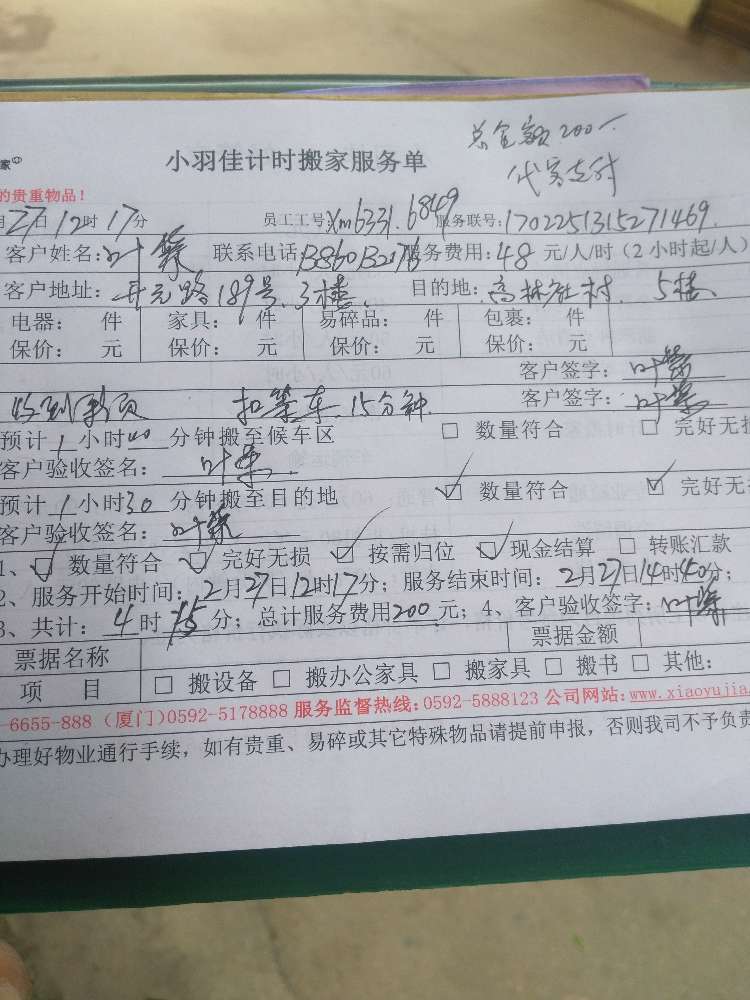 总金额200.
代客支付
家
小羽佳计时搬家服务单
的贵重物品!
月27日12时17分 员工工号:xm6331.6849 服务联号:170225131527 1469.
客户姓名:叶 联系电话: 服务费用:48元/人/时(2小时起/人)
客户地址:开元路189号.3楼 目的地:高林社村. 5楼.
电器: 件 家具: 件 易碎品: 件 包裹: 件
保价: 元 保价: 元 保价: 元 保价: 元
客户签字:叶
收到款项 扣等车15分钟. 客户签字:叶
预计1小时40分钟搬至候车区 □ 数量符合 □ 完好无损
客户验收签名:叶
预计1小时30分钟搬至目的地 ☑ 数量符合 ☑ 完好无损
客户验收签名:叶
1、☑ 数量符合 ☑ 完好无损 ☑ 按需归位 ☑ 现金结算 □ 转账汇款
2、服务开始时间:2月27日12时17分;服务结束时间:2月27日14时40分;
3、共计:4时15分;总计服务费用200元;4、客户验收签字:叶
票据名称 票据金额
项 目 □ 搬设备 □ 搬办公家具 □ 搬家具 □ 搬书 □ 其他:
-6655-888(厦门)0592-5178888 服务监督热线:0592-5888123 公司网站:www.xiaoyujia
办理好物业通行手续,如有贵重、易碎或其它特殊物品请提前申报,否则我司不予负责